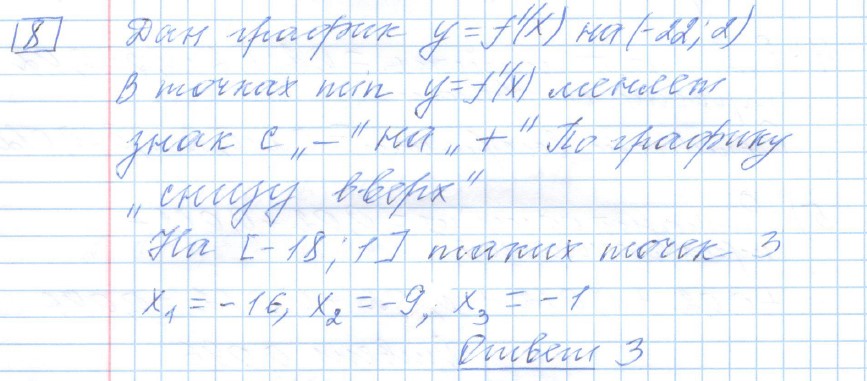 8 Дан график y=f'(x) на (-22; 2)
В точках min y=f'(x) меняет
знак с „-" на „+" По графику
„снизу вверх"
На [-18; 1] таких точек 3
x₁ = -16, x₂ = -9, x₃ = -1
Ответ 3